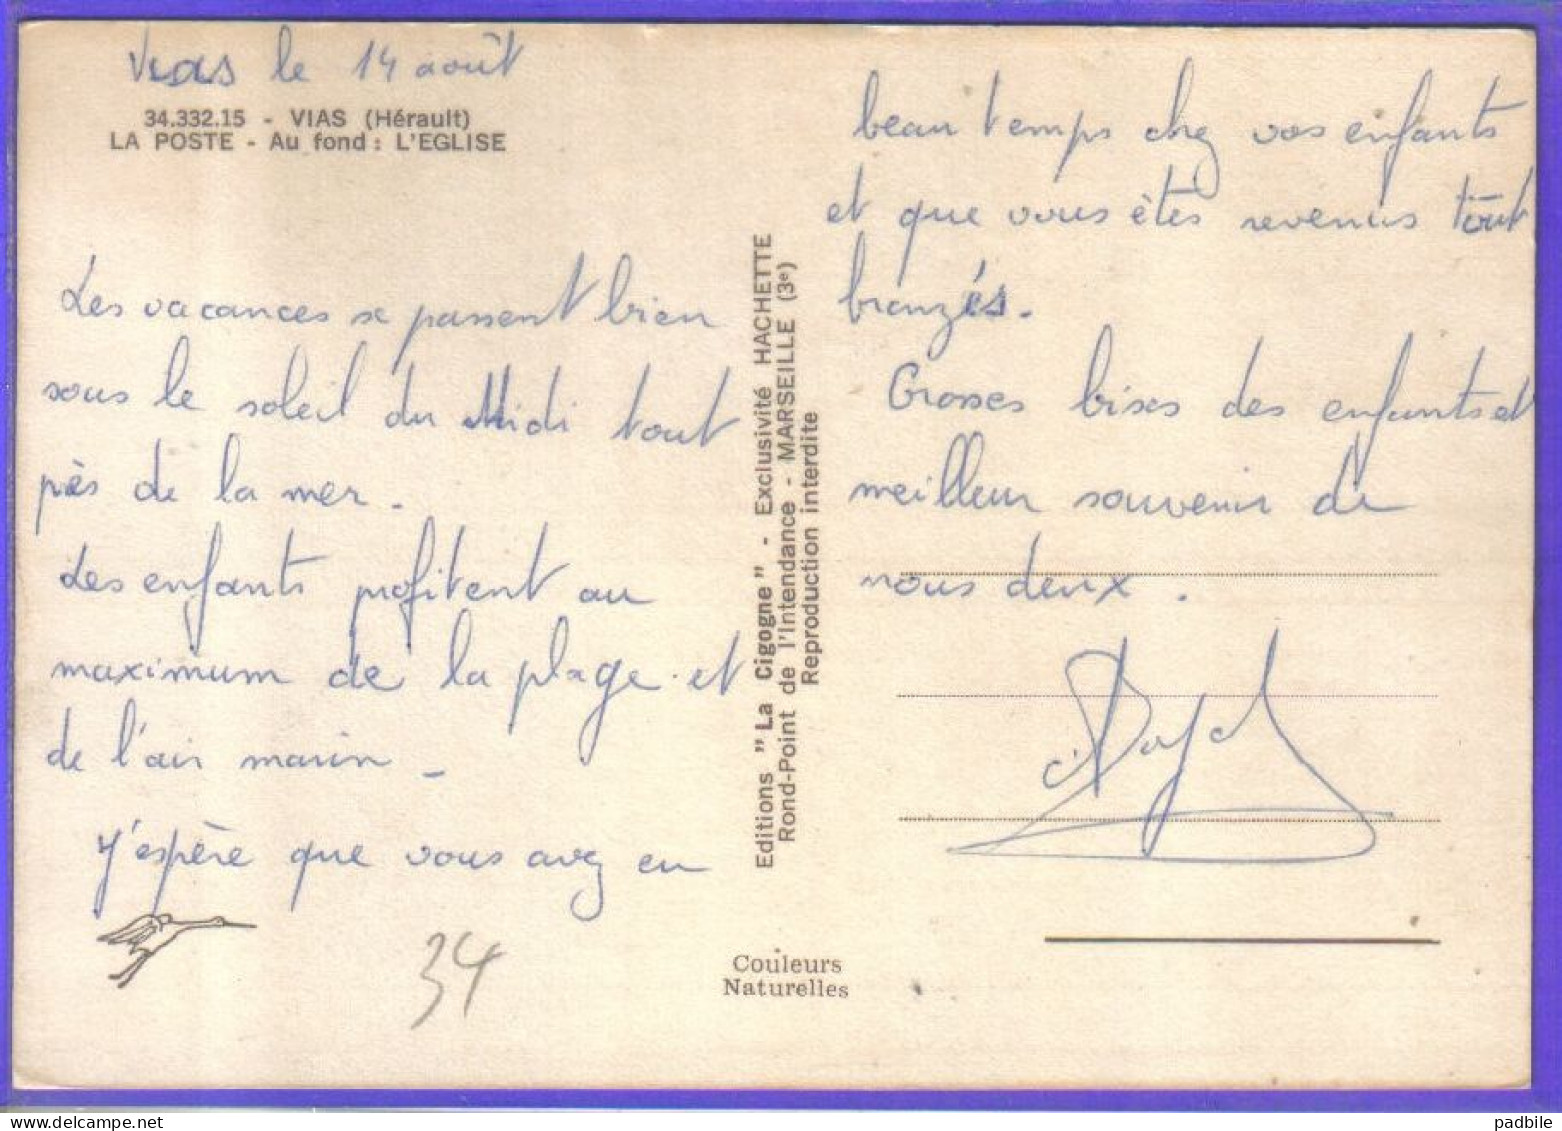 Vias le 14 août
34.332.15 - VIAS (Hérault)
LA POSTE - Au fond : L'EGLISE
Les vacances se passent bien
sous le soleil du Midi tout
près de la mer.
Les enfants profitent au
maximum de la plage et
de l'air marin -
J'espère que vous avez eu
34
Editions " La Cigogne " - Exclusivité HACHETTE
Rond-Point de l'Intendance - MARSEILLE (3e)
Reproduction interdite
Couleurs
Naturelles
beau temps chez vos enfants
et que vous êtes revenus tout
bronzés.
Grosses bises des enfants et
meilleur souvenir de
nous deux.
padbile